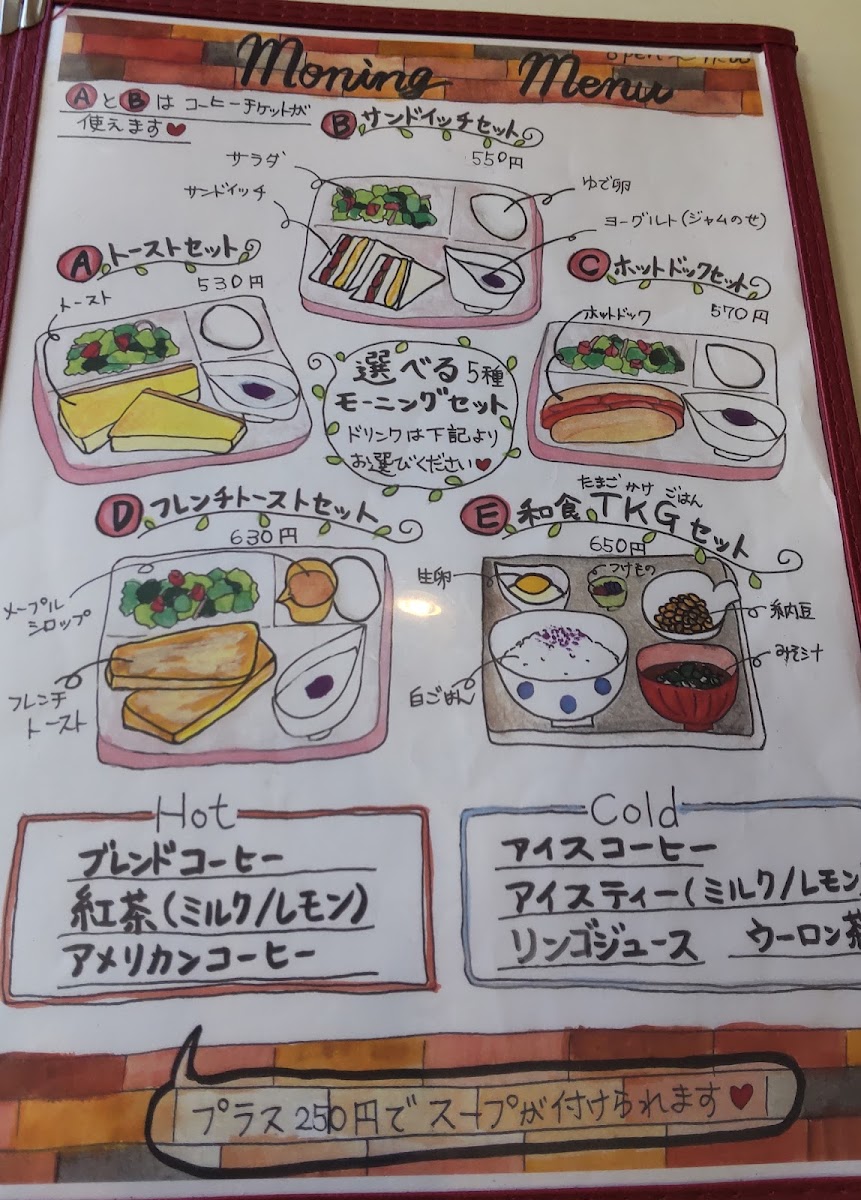 Moning Menu
ⒶとⒷは コーヒーチケットが
使えます♥
Ⓑ サンドイッチセット
550円
サラダ
サンドイッチ
ゆで卵
ヨーグルト(ジャムのせ)
Ⓐ トーストセット
530円
トースト
Ⓒ ホットドックセット
570円
ホットドック
選べる5種
モーニングセット
ドリンクは下記より
お選びください♥
Ⓓ フレンチトーストセット
630円
メープル
シロップ
フレンチ
トースト
たまご かけ ごはん
Ⓔ 和食 TKGセット
650円
生卵
つけもの
納豆
白ごはん
みそ汁
Hot
ブレンドコーヒー
紅茶(ミルク/レモン)
アメリカンコーヒー
Cold
アイスコーヒー
アイスティー(ミルク/レモン
リンゴジュース ウーロン茶
プラス250円でスープが付けられます♥